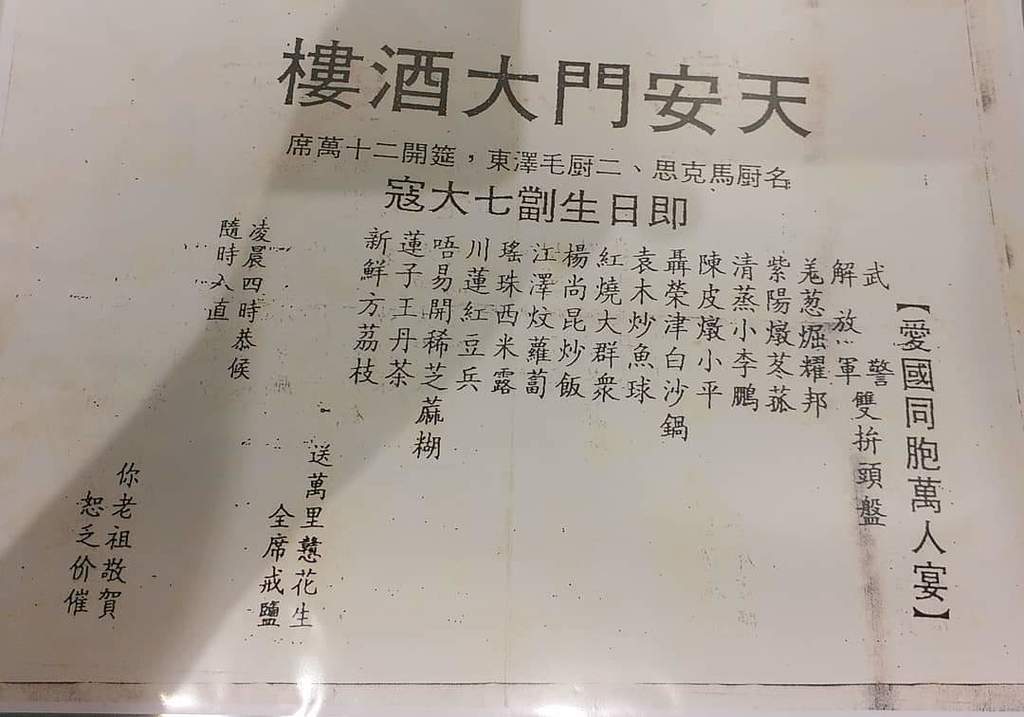 天安門大酒樓
名厨馬克思、二厨毛澤東，筵開二十萬席
即日生劏七大寇
【愛國同胞萬人宴】
武警
解放軍
雙拚頭盤
羗葱堀耀邦
紫陽燉苳菰
清蒸小李鵬
陳皮燉小平
聶榮津白沙鍋
袁木炒魚球
紅燒大群衆
楊尚昆炒飯
江澤炆蘿蔔
瑤珠西米露
川蓮紅豆兵
唔易開稀芝蔴糊
蓮子王丹茶
新鮮方荔枝
送萬里戇花生
全席戒鹽
凌晨四時恭候
隨時入直
你老祖敬賀
恕乏价催